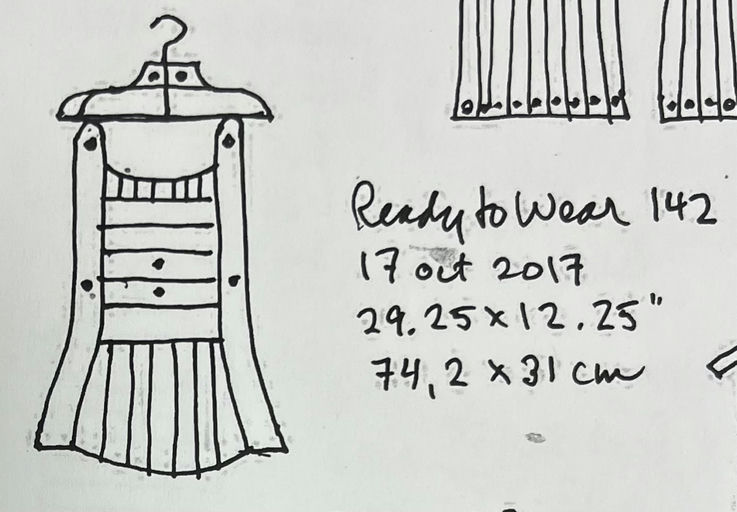 Ready to Wear 142
17 oct 2017
29.25 x 12.25"
74,2 x 31 cm